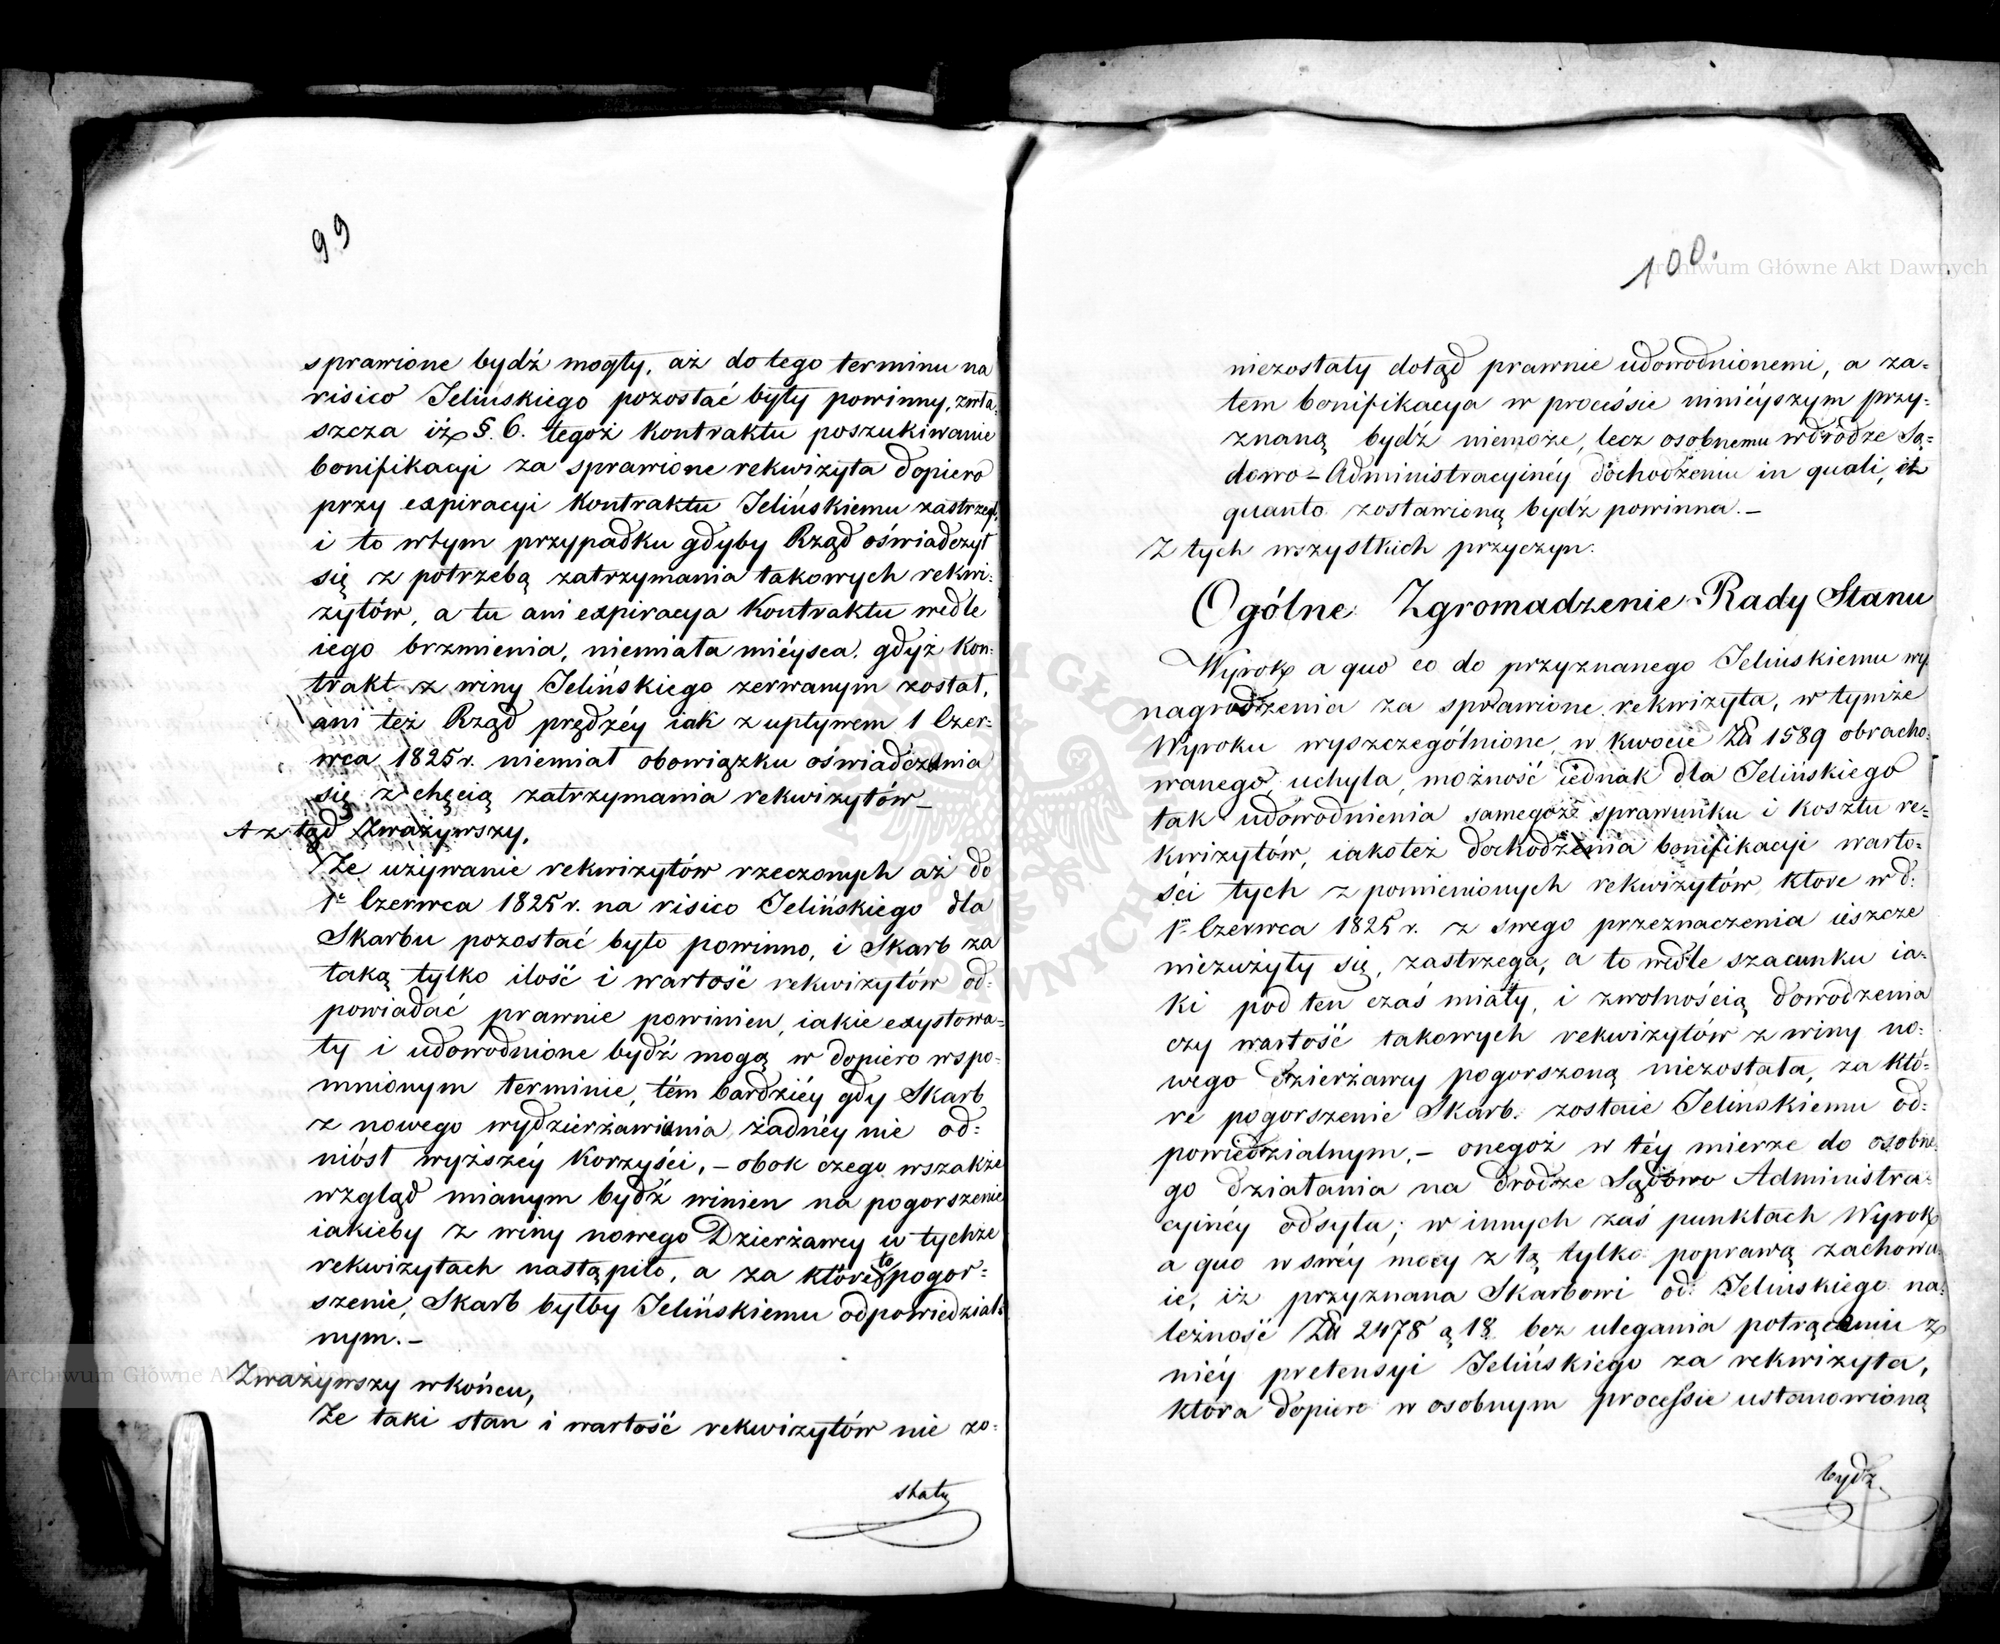 99
sprawione bydź mogły, aż do tego terminu na
risico Jelińskiego pozostać były powinny, zwła-
szcza iż §. 6. tegoż kontraktu poszukiwanie
bonifikacyi za sprawione rekwizyta dopiero
przy expiracyi kontraktu Jelińskiemu zastrzegł,
i to w tym przypadku gdyby Rząd oświadczył
się z potrzebą zatrzymania takowych rekwi-
zytów, a tu ani expiracya kontraktu wedle
iego brzmienia, niemiała mieysca, gdyż kon-
trakt z winy Jelińskiego zerwanym został,
ani też Rząd prędzéy iak z upływem 1 Czer-
wca 1825 r. niemiał obowiązku oświadczenia
się z chęcią zatrzymania rekwizytów_
A ztąd Zważywszy,
Że używanie rekwizytów rzeczonych aż do
1o Czerwca 1825 r. na risico Jelińskiego dla
Skarbu pozostać było powinno, i Skarb za
taką tylko ilość i wartość rekwizytów od-
powiadać prawnie powinien, iakie exystowa-
ły i udowodnione bydź mogą w dopiero wspo-
mnionym terminie, tém bardziéy gdy Skarb
z nowego wydzierżawienia żadnéy nie od-
niósł wyższéy korzyści, – obok czego wszakże
wzgląd mianym bydź winien na pogorszenie
iakieby z winy nowego Dzierżawcy w tychże
rekwizytach nastąpiło, a za które to pogor-
szenie, Skarb byłby Jelińskiemu odpowiedzial-
nym. –
Zważywszy wkońcu,
Że taki stan i wartość rekwizytów nie zo-
stały
100.
niezostały dotąd prawnie udowodnionemi, a za-
tem bonifikacya w processie ninieyszym przy-
znaną bydź niemoże, lecz osobnemu w drodze Są-
dowo – Administracyinéy dochodzeniu in quali, et
quanto zostawioną bydź powinna. –
Z tych wszystkich przyczyn.
Ogólne Zgromadzenie Rady Stanu
Wyrok a quo co do przyznanego Jelińskiemu wy
nagrodzenia za sprawione rekwizyta, w tymże
Wyroku wyszczególnione, w kwocie Zł 1589 obracho-
wanego, uchyla, możność iednak dla Jelińskiego
tak udowodnienia samegoż sprawunku i kosztu re-
kwizytów, iakoteż dochodzenia bonifikacyi warto-
ści tych z pomienionych rekwizytów, które w d:
1o Czerwca 1825 r. z swego przeznaczenia ieszcze
niezużyły się, zastrzega, a to wedle szacunku ia-
ki pod ten czas miały, i zwolnością dowodzenia
czy wartość takowych rekwizytów z winy no-
wego dzierżawcy pogorszoną niezostała, za któ-
re pogorszenie Skarb zostaie Jelińskiemu od-
powiedzialnym, – onegoż w téy mierze do osobne-
go działania na drodze Sądowo Administra-
cyinéy odsyła; w innych zaś punktach Wyrok
a quo w swéy mocy z tą tylko poprawą zachowu-
ie, iż przyznana Skarbowi od Jelińskiego na-
leżność Zł 2478 g 18 bez ulegania potrąceniu z
niéy pretensyi Jelińskiego za rekwizyta,
która dopiero w osobnym processie ustanowioną
bydź